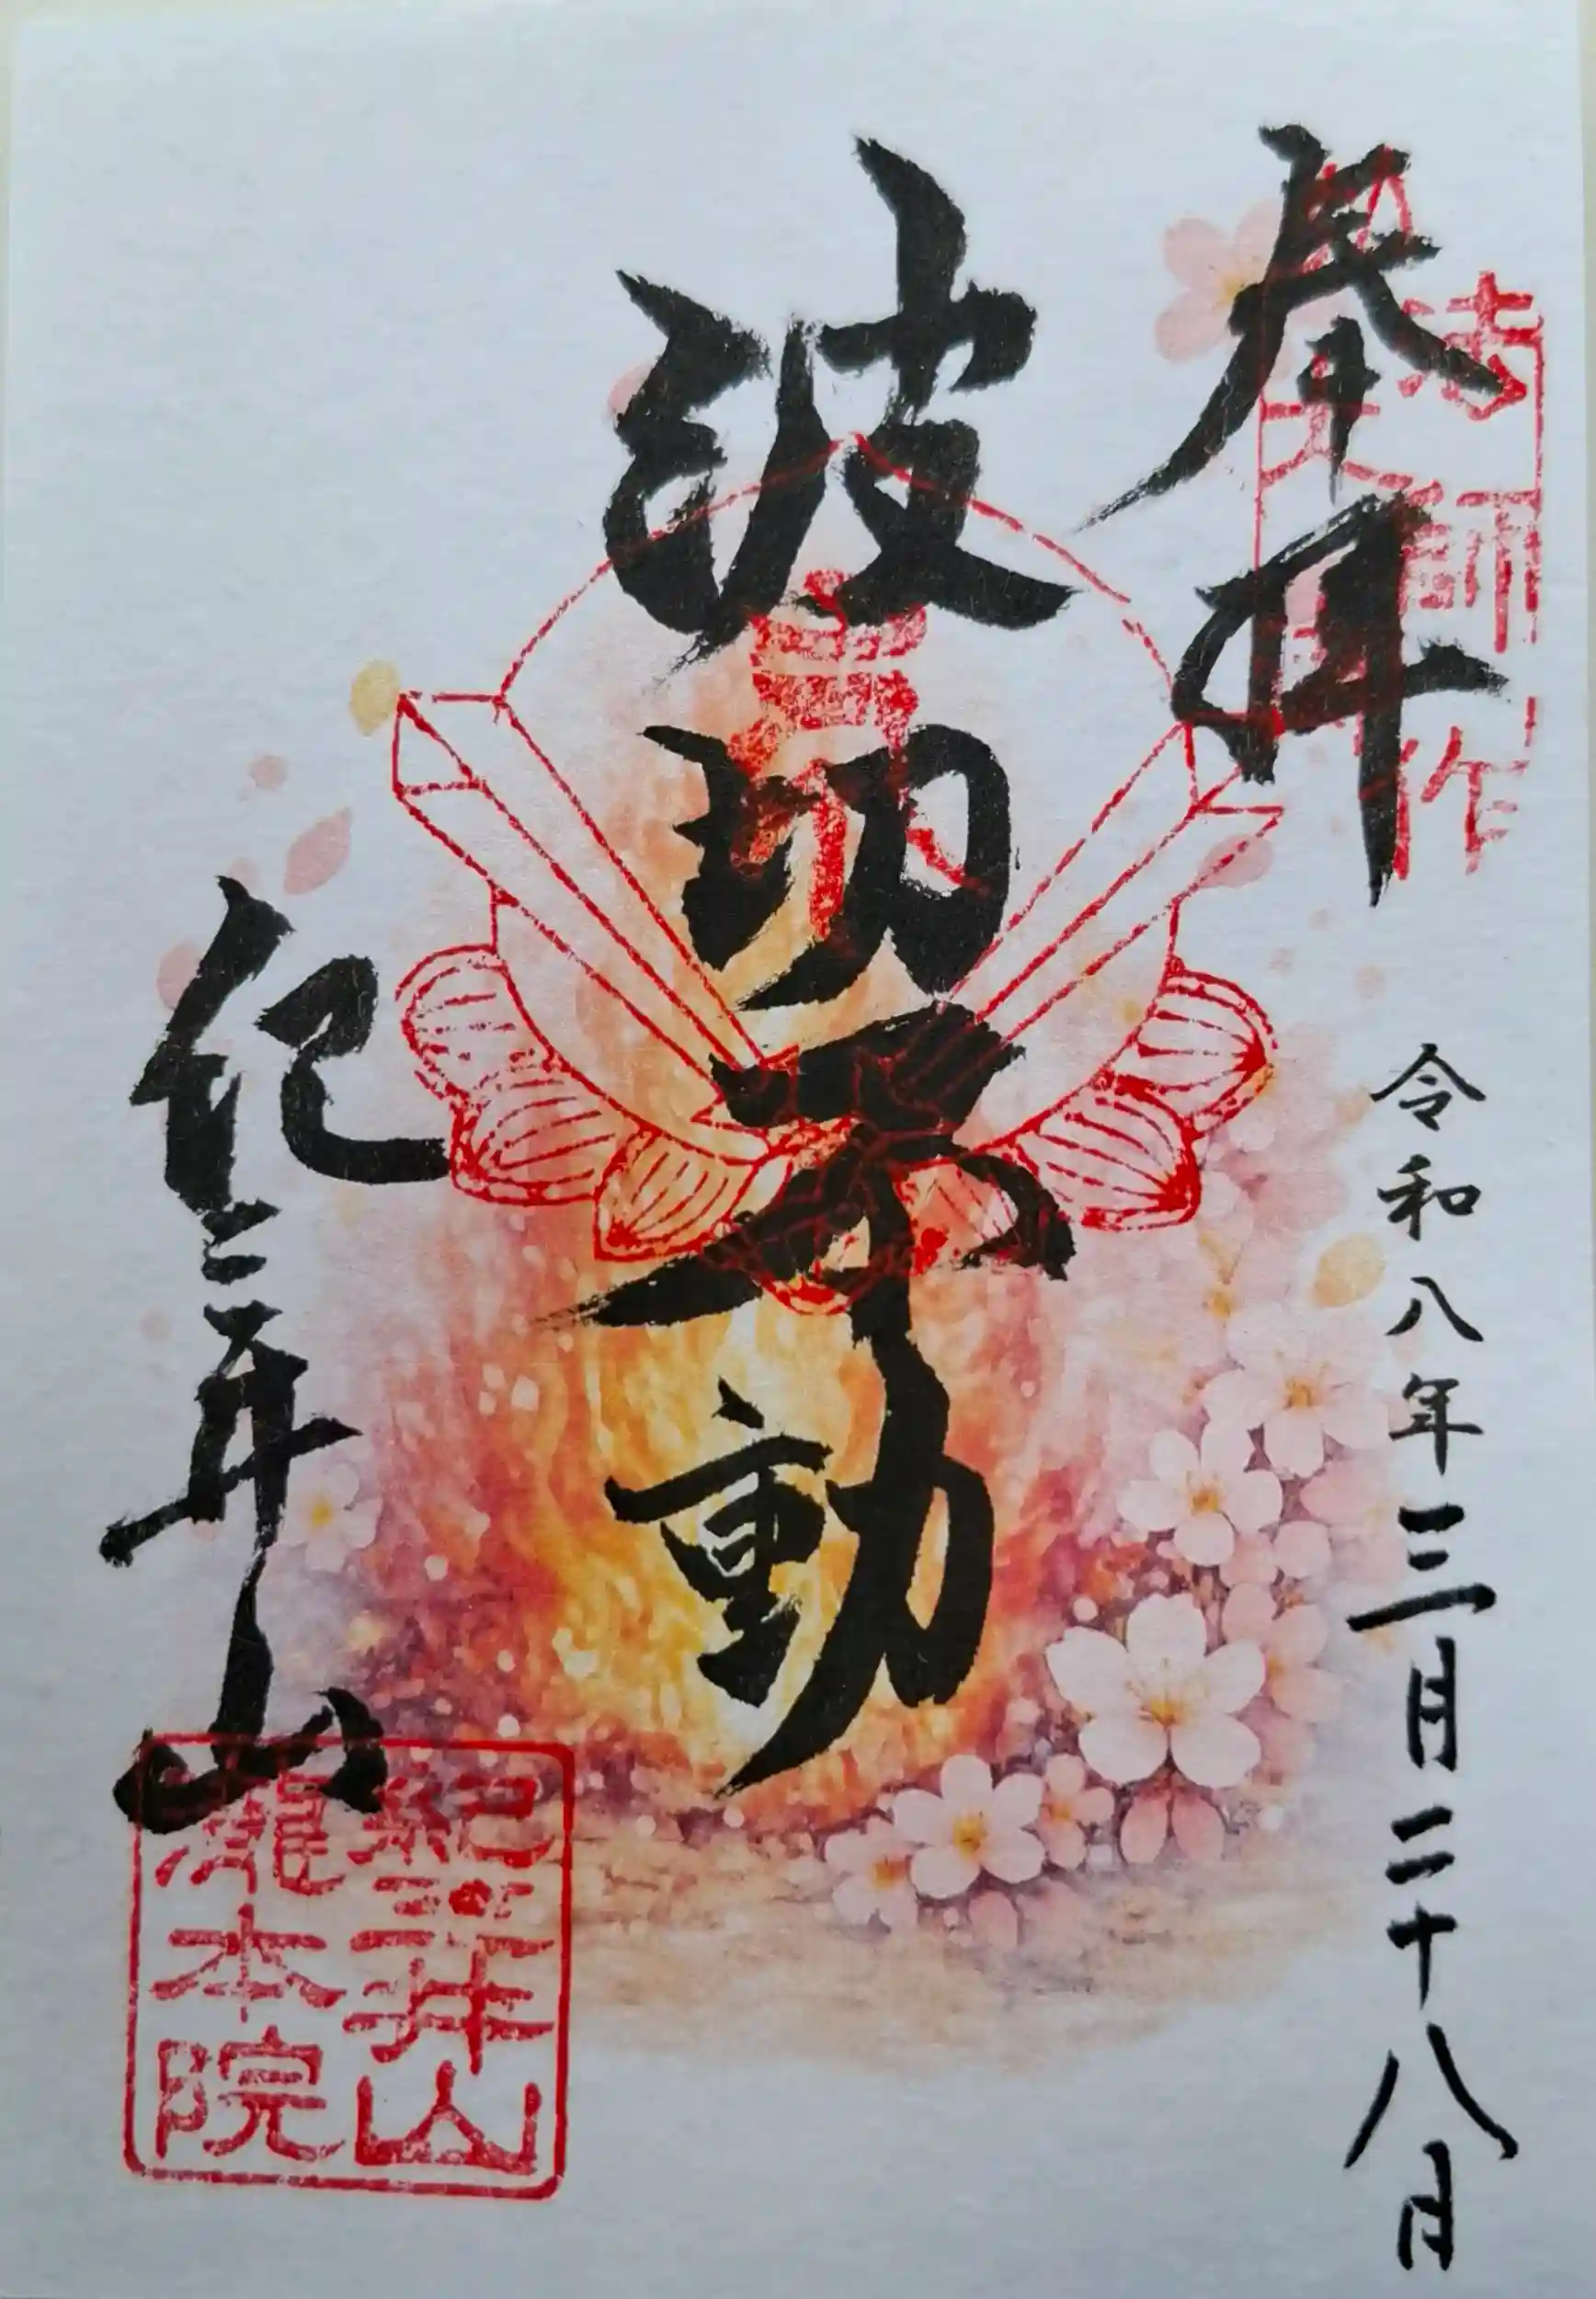 奉拝
法
師
作
令和八年三月二十八月
波切不動
紀三井山
紀三井山
瀧本院